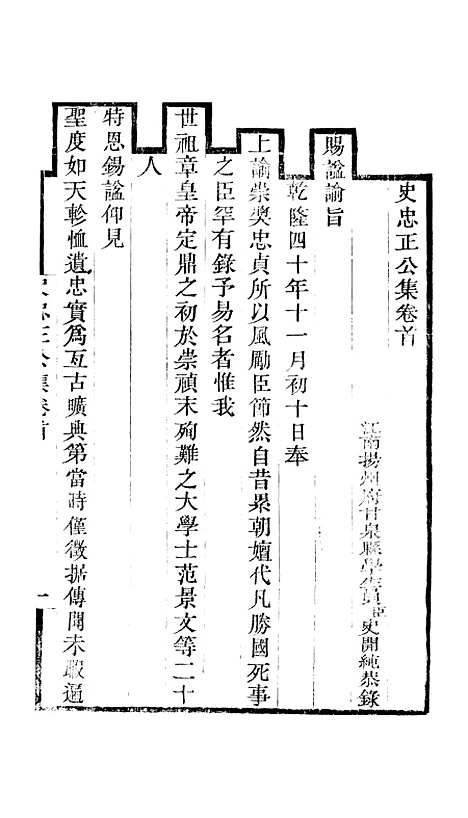 史忠正公集卷首
江南揚州府甘泉縣學生員臣史開純恭錄
賜諡諭旨
乾隆四十年十一月初十日奉
上諭崇獎忠貞所以風勵臣節然自昔累朝嬗代凡勝國死事
之臣罕有錄予易名者惟我
世祖章皇帝定鼎之初於崇禎末殉難之大學士范景文等二十
人
特恩錫諡仰見
聖度如天軫恤遺忠實爲亙古曠典第當時僅徵據傳聞未暇遍
史忠正公集卷首
一